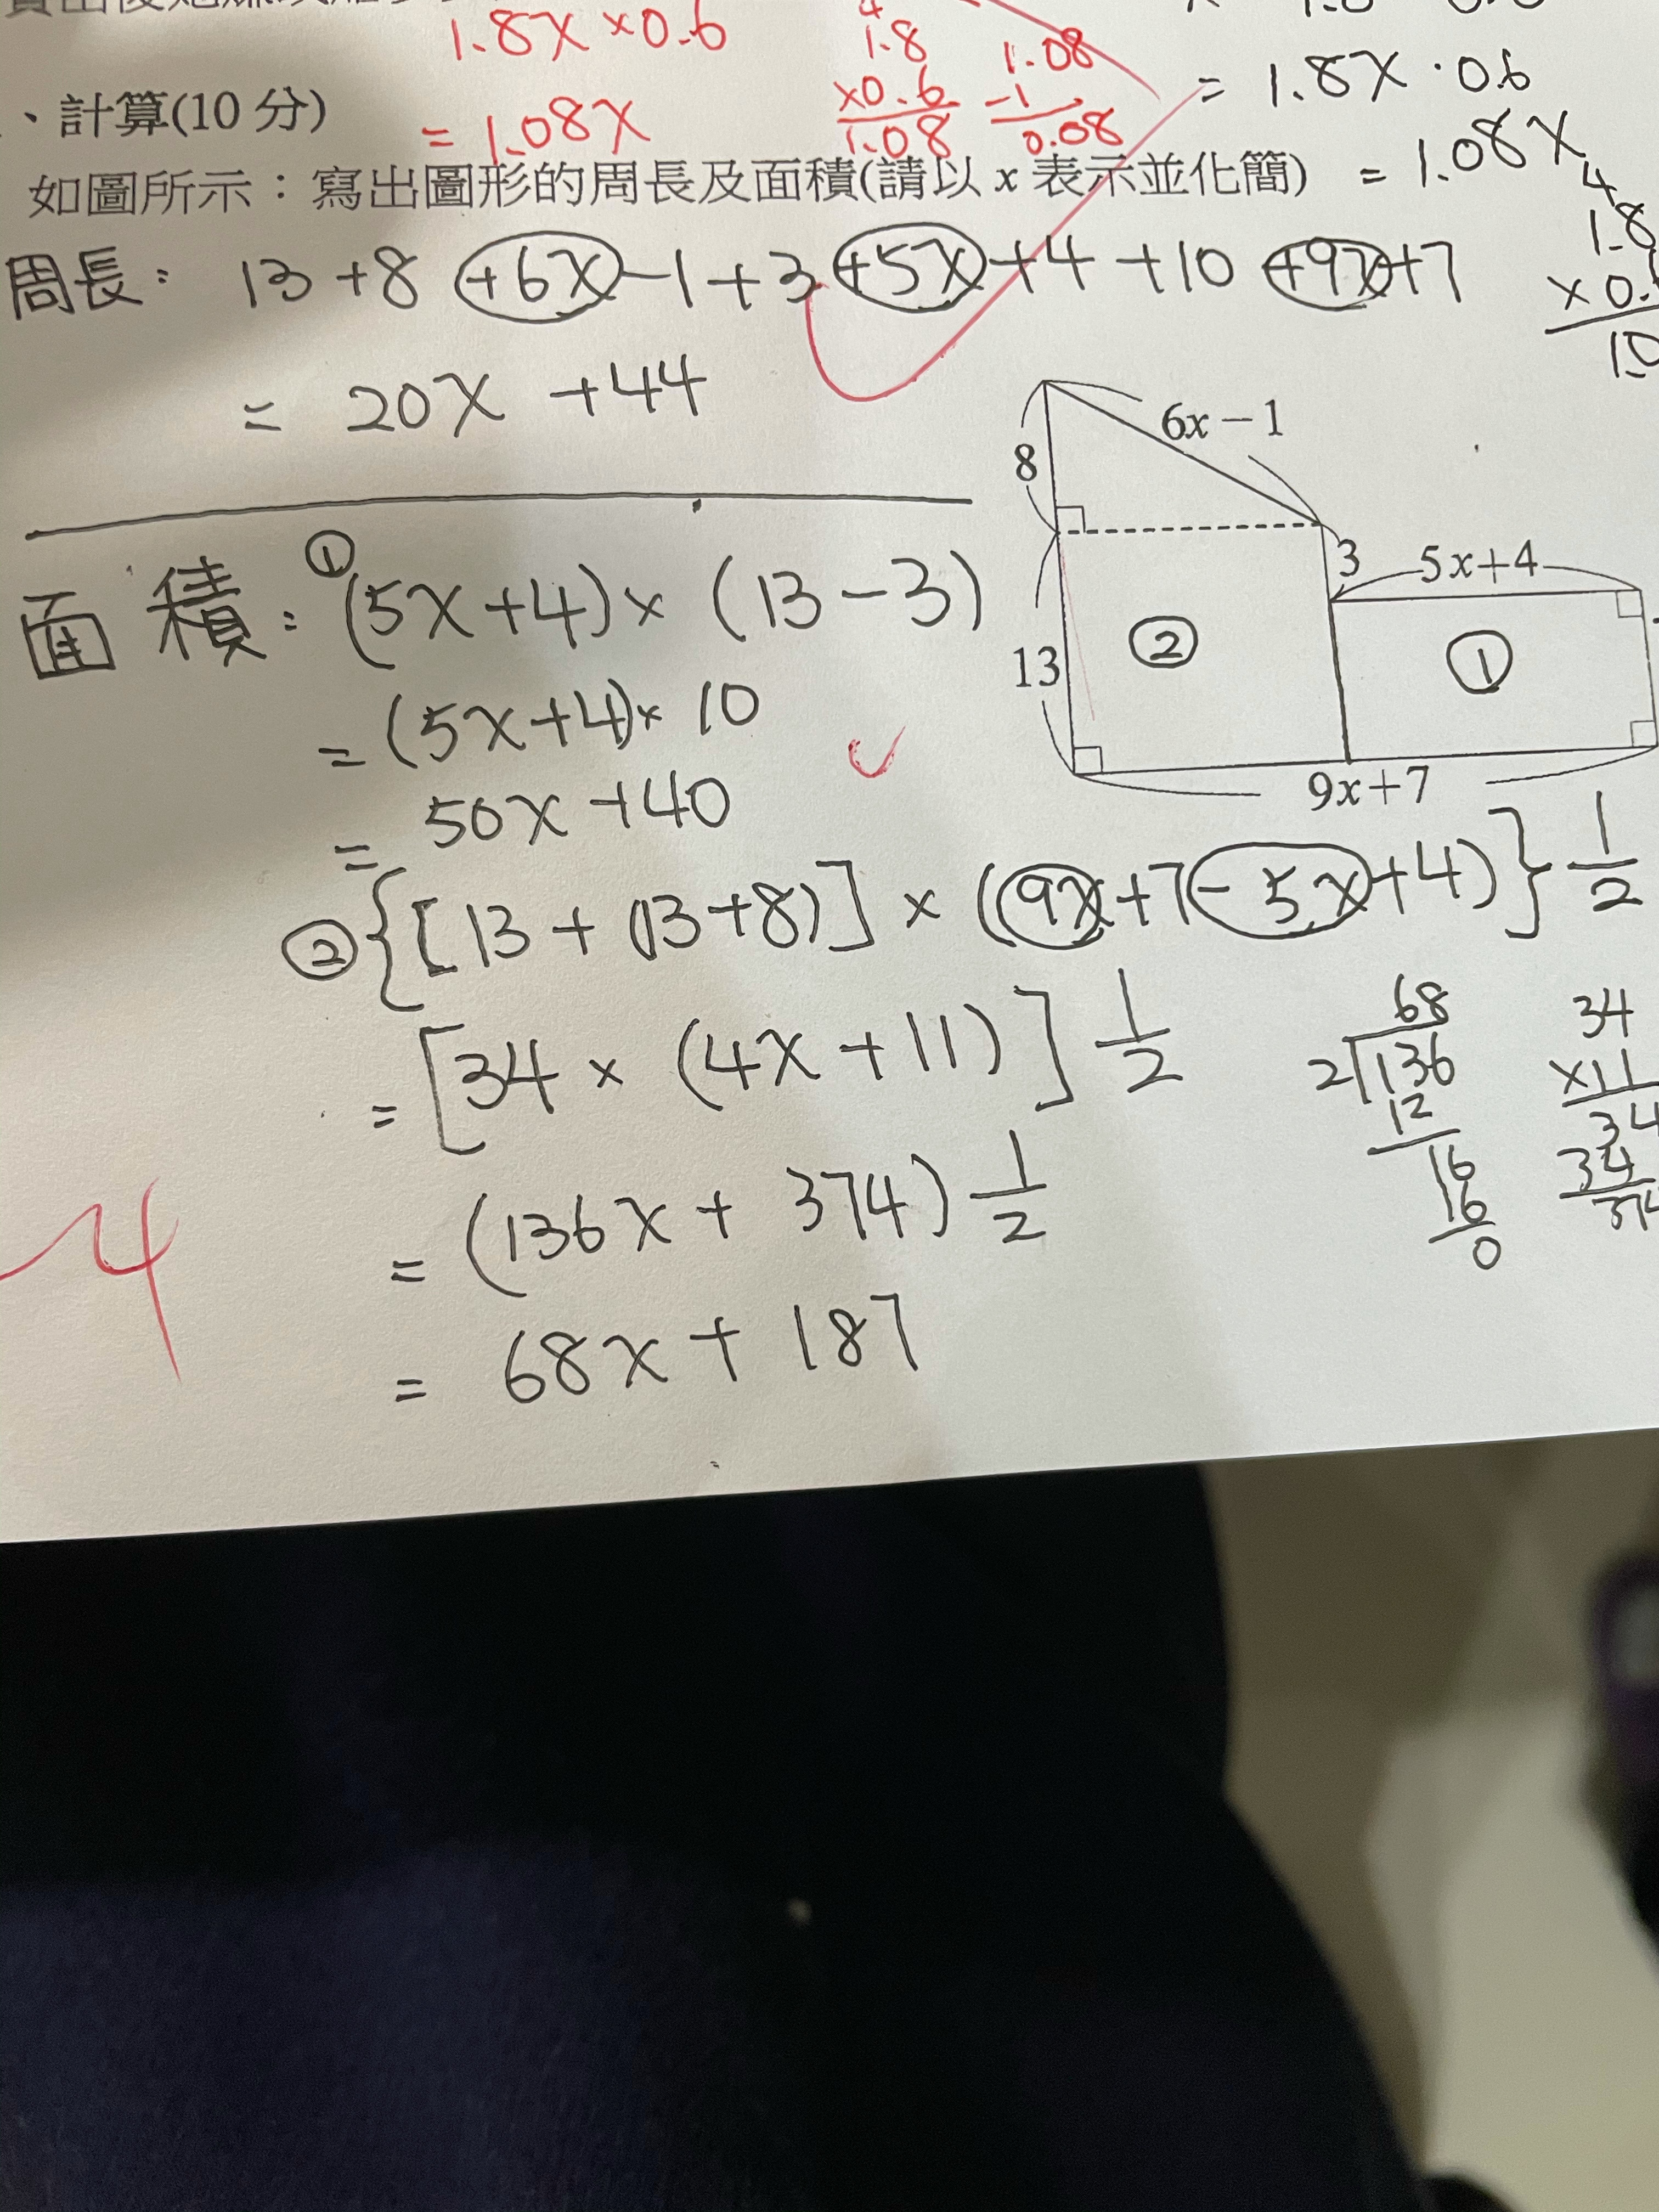 1.8x×0.6
= 1.08x
1.8
×0.6
1.08
1.08
-1
0.08
= 1.8x·0.6
= 1.08x
4
1.8
×0.
1.0
、計算(10 分)
如圖所示：寫出圖形的周長及面積(請以 x 表示並化簡)
周長： 13+8+6x-1+3+5x+4+10+9x+7
= 20x+44
8
6x－1
3
5x+4
13
②
①
9x+7
面積：①(5x+4)×(13-3)
=(5x+4)×10
= 50x+40
②{[13+(13+8)]×(9x+7-5x+4)}1/2
=[34×(4x+11)]1/2
=(136x+374)1/2
= 68x+187
68
2√136
12
16
16
0
34
×11
34
34
374
-4